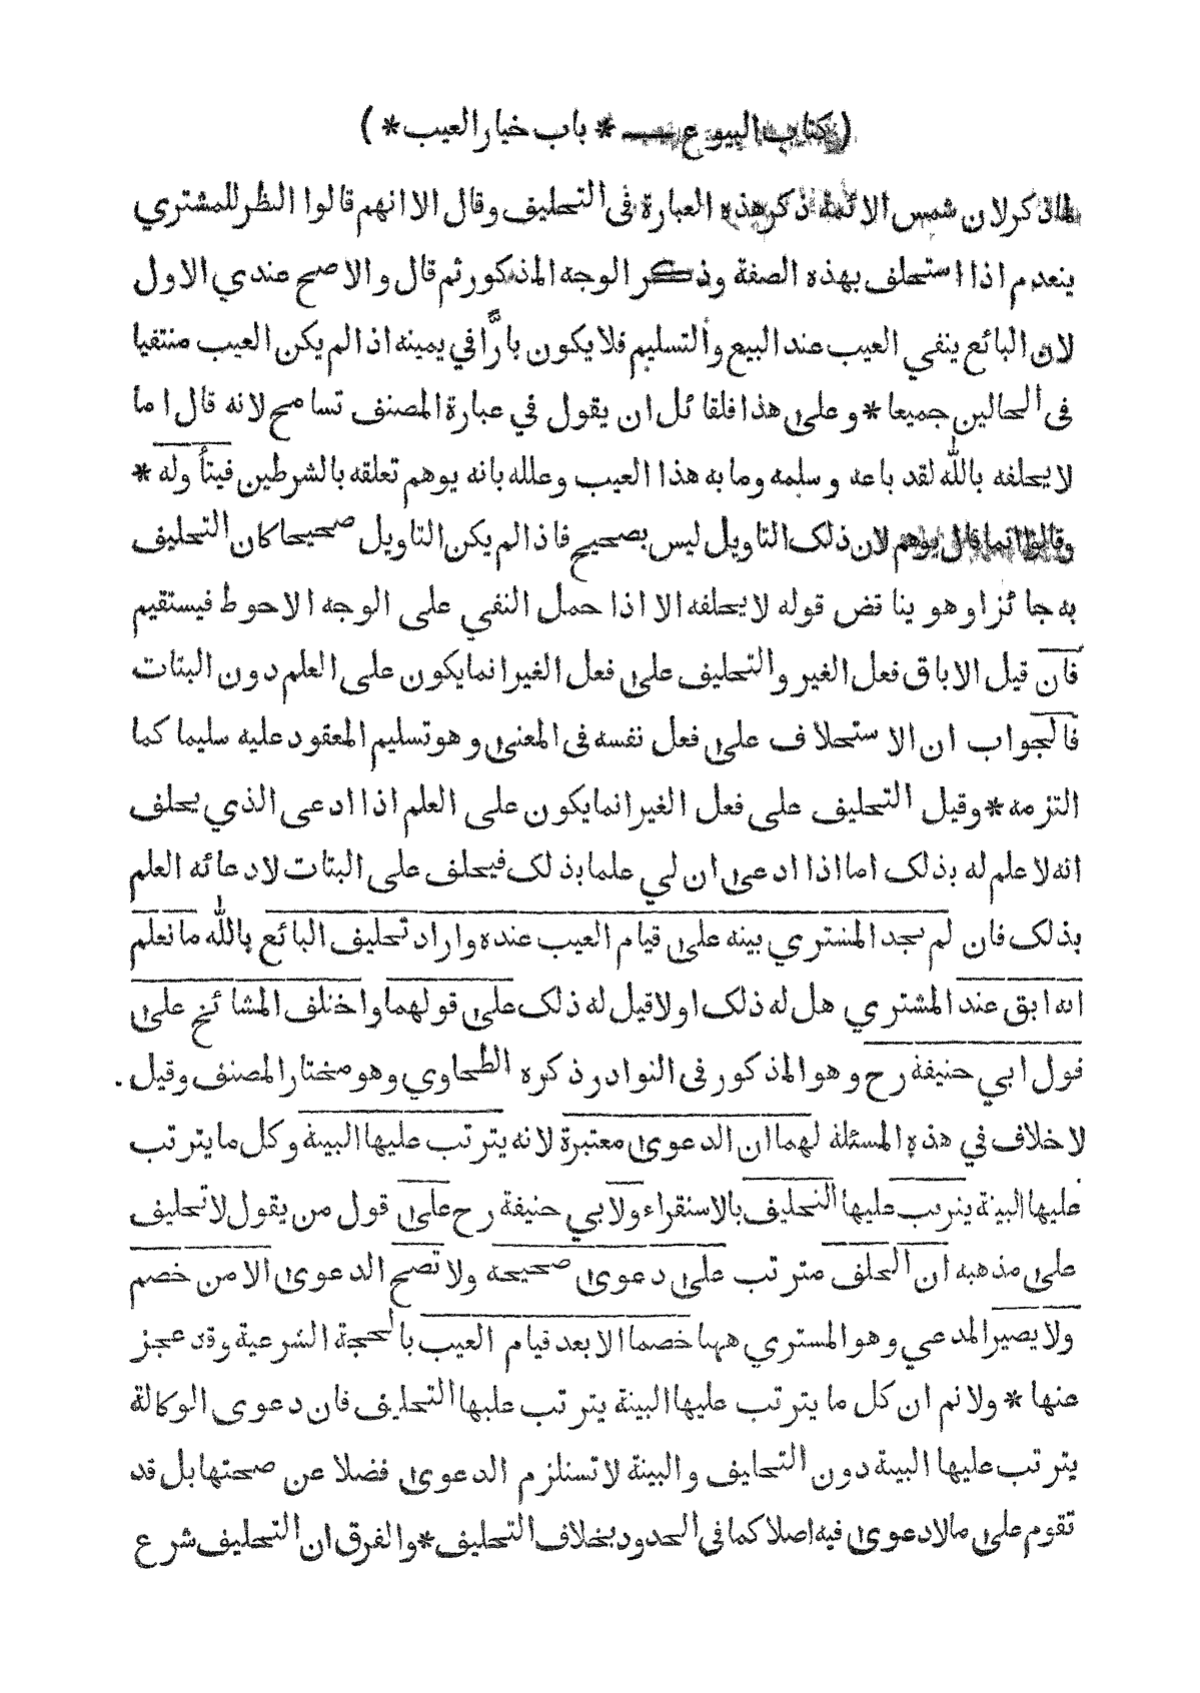 ( كتاب البيوع — * باب خيار العيب * )
لما ذكر لان شمس الائمة ذكر هذه العبارة فى التحليف وقال الا انهم قالوا النظر للمشتري
ينعدم اذا استحلف بهذه الصفة وذكر الوجه المذكور ثم قال والاصح عندي الاول
لان البائع ينفي العيب عند البيع والتسليم فلا يكون بارًّا في يمينه اذا لم يكن العيب منتفيا
فى الحالين جميعا * وعلى هذا فلقائل ان يقول في عبارة المصنف تسامح لانه قال اما
لا يحلفه بالله لقد باعه وسلمه وما به هذا العيب وعلله بانه يوهم تعلقه بالشرطين فيتأوله *
وقالوا انما قال يوهم لان ذلك التاويل ليس بصحيح فاذا لم يكن التاويل صحيحا كان التحليف
به جائزا وهو يناقض قوله لا يحلفه الا اذا حمل النفي على الوجه الاحوط فيستقيم
فان قيل الاباق فعل الغير والتحليف على فعل الغير انما يكون على العلم دون البتات
فالجواب ان الاستحلاف على فعل نفسه فى المعنى وهو تسليم المعقود عليه سليما كما
التزمه * وقيل التحليف على فعل الغير انما يكون على العلم اذا ادعى الذي يحلف
انه لا علم له بذلك اما اذا ادعى ان لي علما بذلك فيحلف على البتات لادعائه العلم
بذلك فان لم يجد المشتري بينه على قيام العيب عنده واراد تحليف البائع بالله ما نعلم
انه ابق عند المشتري هل له ذلك اولا قيل له ذلك على قولهما واختلف المشائخ على
قول ابي حنيفة رح وهو المذكور فى النوادر ذكره الطحاوي وهو مختار المصنف وقيل .
لا خلاف في هذه المسئلة لهما ان الدعوى معتبرة لانه يترتب عليها البينة وكل ما يترتب
عليها البينة يترتب عليها التحليف بالاستقراء ولابي حنيفة رح على قول من يقول لا تحليف
على مذهبه ان الحلف مترتب على دعوى صحيحه ولا تصح الدعوى الا من خصم
ولا يصير المدعي وهو المستري ههنا خصما الا بعد قيام العيب بالحجة الشرعية وقد عجز
عنها * ولا نم ان كل ما يترتب عليها البينة يترتب عليها التحليف فان دعوى الوكالة
يترتب عليها البينة دون التحليف والبينة لا تستلزم الدعوى فضلا عن صحتها بل قد
تقوم على ما لا دعوى فيه اصلا كما فى الحدود بخلاف التحليف * والفرق ان التحليف شرع